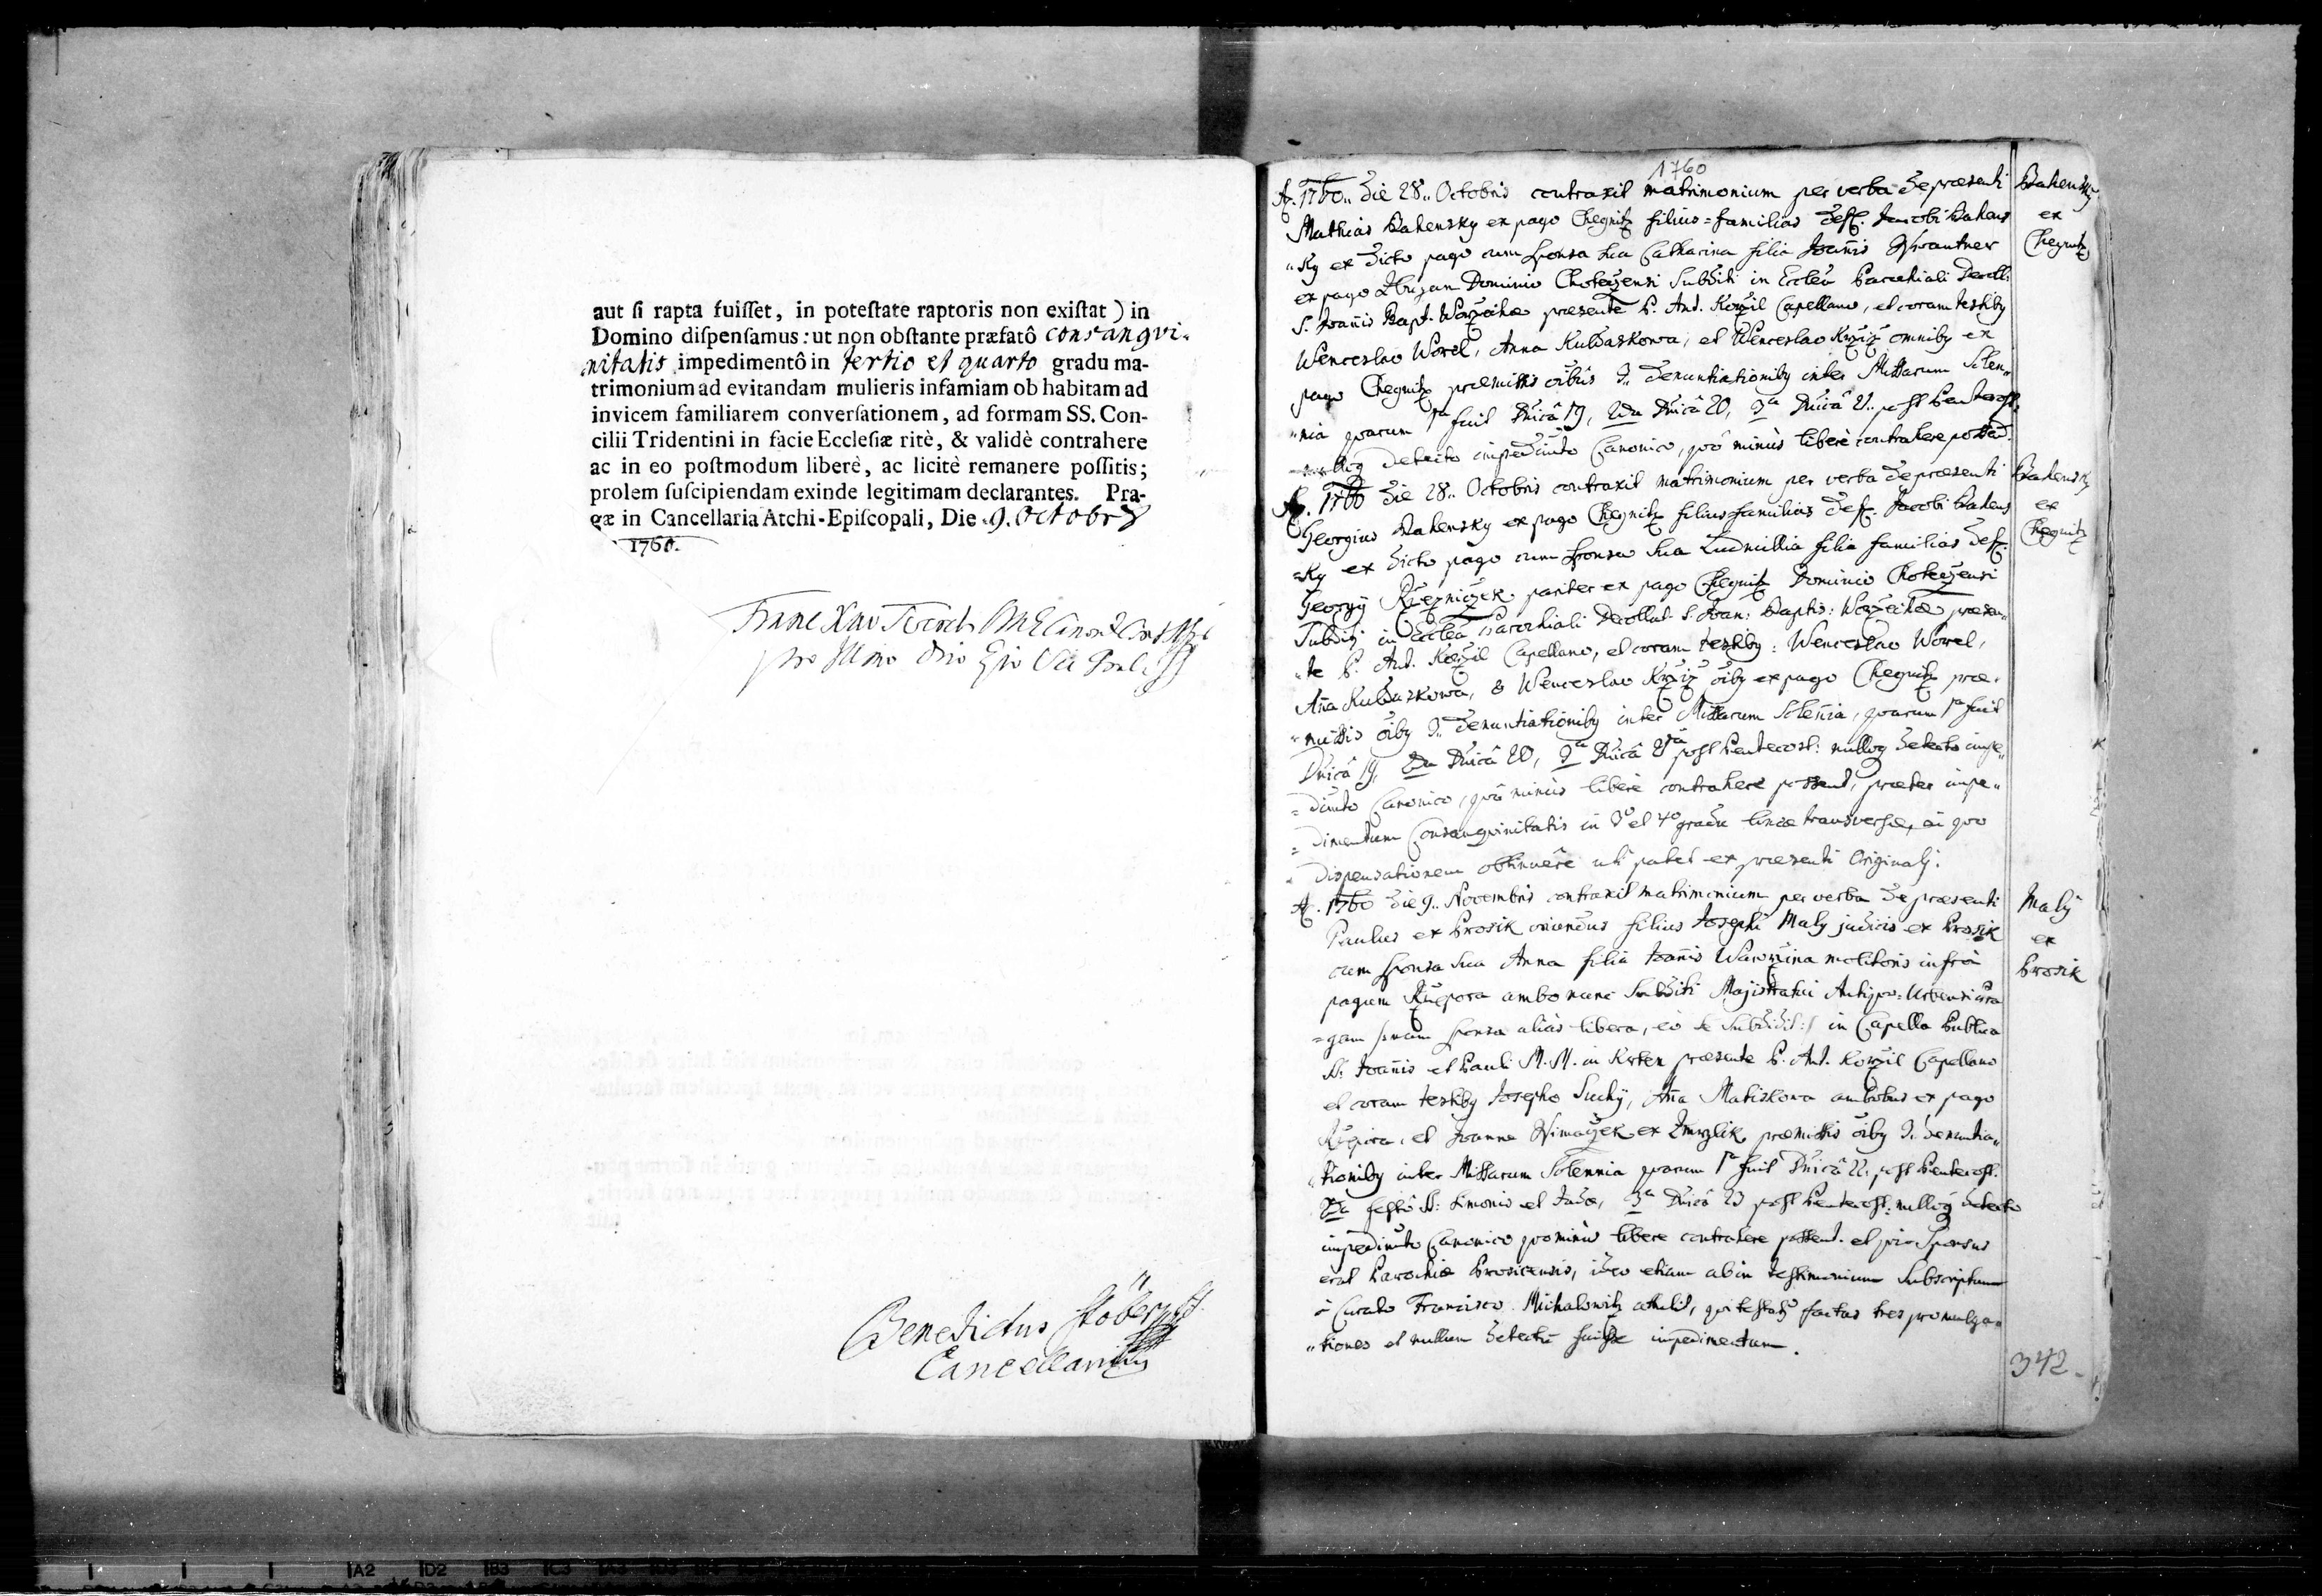 aut ſi rapta fuiſſet, in poteſtate raptoris non exiſtat) in
Domino diſpenſamus: ut non obſtante præfatô consangvi-
nitatis impedimentô in tertio et quarto gradu ma-
trimonium ad evitandam mulieris infamiam ob habitam ad
invicem familiarem converſationem, ad formam SS. Con-
cilii Tridentini in facie Eccleſiæ ritè, & validè contrahere
ac in eo poſtmodum liberè, ac licitè remanere poſſitis;
prolem ſuſcipiendam exinde legitimam declarantes. Pra-
gæ in Cancellaria Atchi-Epiſcopali, Die 9. Octobr
1760.
Franc Xav
pro
Benedictus Stöber
Cancellarius
1760
A. 1760 die 28 Octobris contraxit matrimonium per verba de præsenti
Mathias Bakensky ex pago Chegnitz filius-familias def. Jacobi Bakens
"ky ex dicto pago cum sponsa sua Catharina filia Joañis
ex pago Dominio Choteczensi Subditi in Eccleâ Parochiali Decoll:
S. Joañis Bapt. præsente P. Ant. Korzil Capellano, et coram testibg
Wenceslao Worel, Anna Kubaskowa, et Wenceslao Krziz omnibg ex
pago Chegnitz præmissis oibus 3. denuntiationibg inter Missarum Solen"
"nia quarum 1a fuit Dnicâ 19, 2da Dnicâ 20, 3a Dnicâ 21. post Pentecost.
nulloq detecto impedimto Canonico, quô minùs liberè contrahere possent.
Bakensky
ex
Chegnitz
A. 1760 die 28. Octobris contraxit matrimonium per verba de præsenti
Georgius Bakensky ex pago Chegnitz filius familias def. Jacobi Bakens
=ky ex dicto pago cum sponsa sua Ludmillia filia familias def.
Georgÿ Rzezniczek pariter ex pago Chegnitz Dominio Choteczensi
Subditi in Eccleâ Parochiali Decollat. S. Joan: Baptis: præsen"
"te P. Ant. Korzil Capellano, et coram testibg: Wenceslao Worel,
Aña Kubaskowa, & Wenceslao Krziz oibg ex pago Chegnitz præ"
"missis oibg 3. denuntiationibg inter Missarum Soleñia, quarum 1a fuit
Dnicâ 19, 2da Dnicâ 20, 3a Dnicâ 21 post Pentecost: nulloq detecto impe"
=dimto Canonico, quô minùs liberè contrahere possent, præter impe"
=dimentum Consangvinitatis in 3o et 4o gradu lineæ transversæ, à quo
dispensationem obtinuêre uti patet ex præsenti Originali.
Bakensky
ex
Chegnitz
A. 1760 die 9. Novembris contraxit matrimonium per verba de præsenti
Paulus ex Prosik oriundus filius Josephi Maly judicis ex Prosik
cum sponsa sua Anna filia Joañis Wawrzina molitoris infrà
pagum ambo nunc Subditi Majistratui Antiquo-Urbensi Pra
=gam sponsa aliàs libera, eò se Subdidit:/ in Capella Publica
SS. Joañis et Pauli M.M. in Krten præsente P. Ant. Korzil Capellano
et coram testibg Josepho Suchÿ, Aña Matiskowa ambobus ex pago
et Joanne ex Zmrzlik præmissis oibg 3. denuntia"
"tionibg inter Missarum Solennia quarum 1a fuit Dnicâ 22. post Pentecost.
2da festô SS: Simonis et Judæ, 3a Dnicâ 23 post Pentecost: nulloq detecto
impedimto Canonico quominùs libere contrahere possent. et quia Sponsus
erat Parochiæ Prosicensis, ideo etiam abin testimonium Subscriptum
à Curato Francisco Michalowitz attulit, qui testatg factas tres promulga"
"tiones et nullum detectû fuisse impedimentum.
Malÿ
ex
Prosik
342.